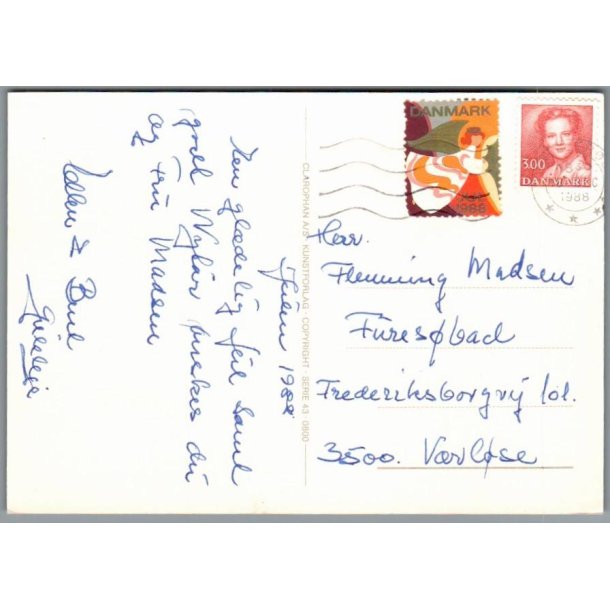 Julen 1988
Den glædelig Jul samt
godt Nytår ønskes du
og Fru Madsen
& Bent
Gilleleje
CLAROPHAN A/S · KUNSTFORLAG · COPYRIGHT · SERIE 43 · 0800
DANMARK
1988
3.00
DANMARK
1988
Hr.
Flemming Madsen
Furesøbad
Frederiksborgvej 101.
3500. Værløse